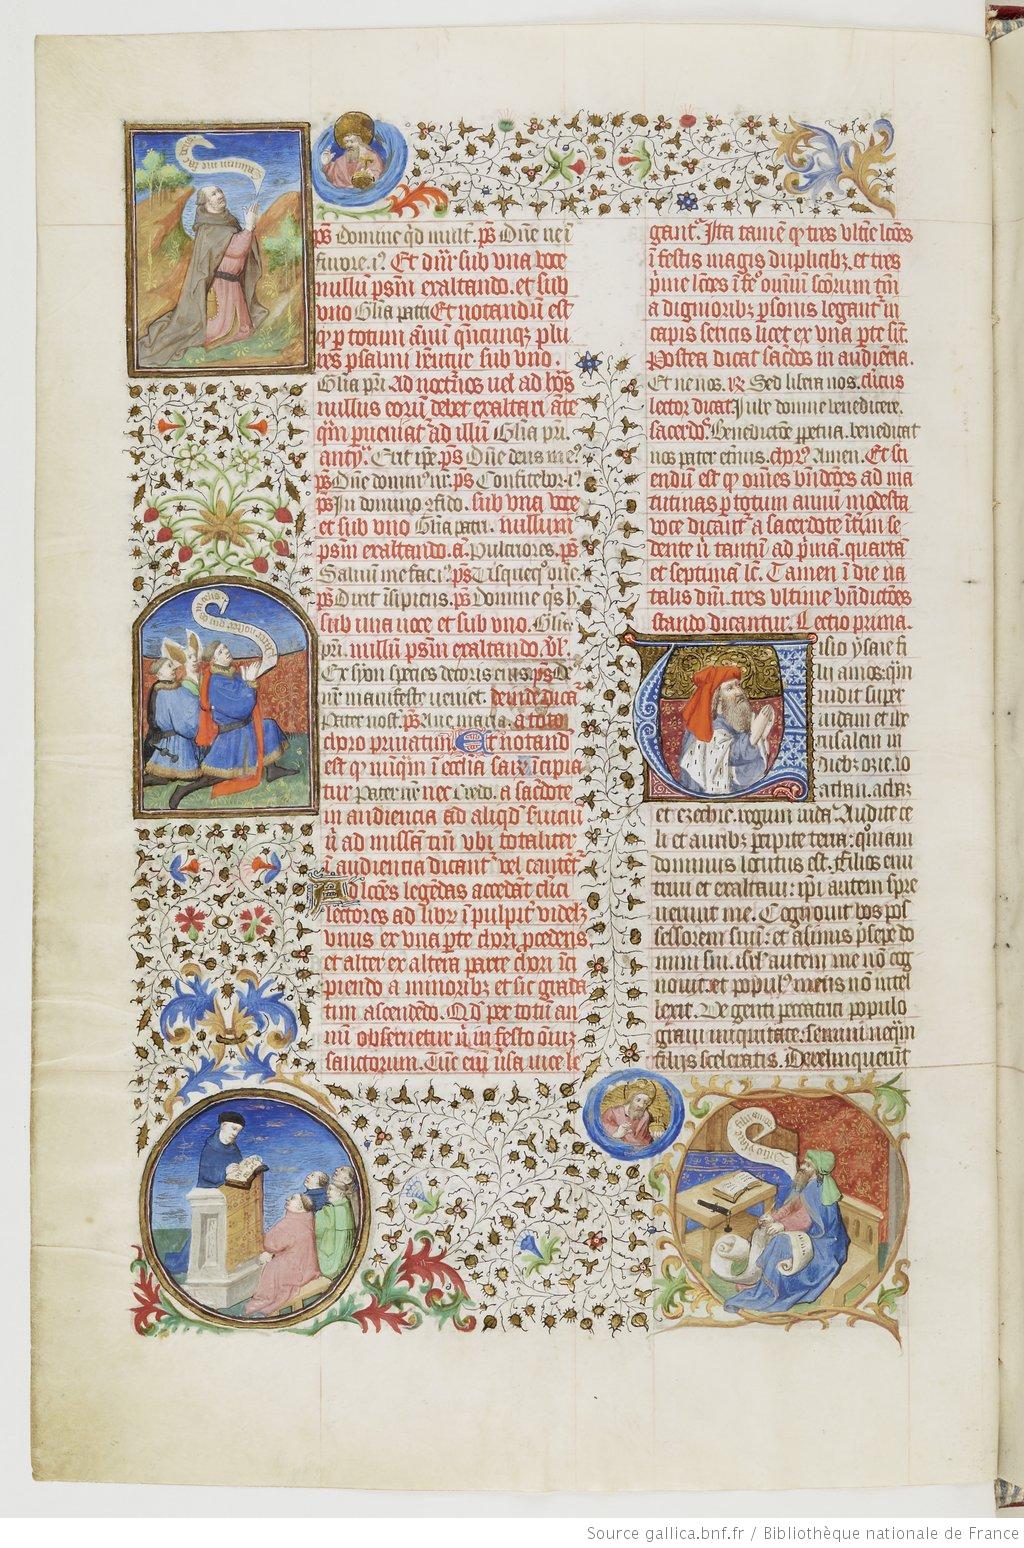 ps Domine q̄d mult. ps Dn̄e ne ī
furore. i? Et dn̄r sub vna voce
nullū psm̄ exaltando. et sub
vno Gl̄ia patri Et notandū est
q̄ p totum annū q̄ncunqz plu
res psalmi dn̄tur sub vno.
Gl̄ia pr̄i. Ad noctn̄os uel ad h̄os
nullus eorū debet exaltari ā̄te
q̄m pueniat ad illū Gl̄ia pr̄i.
ant̄. Erit ip̄e. ps Dn̄e deus me?
ps Dn̄e domin? nr̄. ps Confitebor. i?
ps In domino ꝯfido. sub vna voce
et sub vno Gl̄ia patri. nullum
psm̄ exaltando. a. Pulcriores. ps
Saluū me fac. i? ps Vsqueq̄o dn̄e.
ps Dixit īsipiens. ps Domine q̄s h̄
sub vna uoce et sub vno. Gl̄ia
pr̄i. nullū psm̄ exaltando. v̄.
Ex syon species decoris eius. ps De
n̄r manifeste ueniet. deinde dicāt
Pater nost̄. ps Aue maria. a toto
choro priuatim. Et notand
est q̄ nūq̄m ī ecclīa incipia
tur Pater nr̄ nec Credo. a sac̄dote
in audiencia ad aliq̄d seruiciū
n̄ ad missā tm̄ vbi totaliter
ī audiencia dicant vel cantēt
Ad lc̄ōes legēdas accedāt cl̄ici
lectores ad libr̄ ī pulpit̄ videlz
vnus ex vna pte chori p̄cedens
et alter ex altera parte chori īci
piendo a minoribz et sic grada
tim ascendēdo. Qd̄ per totū an
nū obseruetur n̄ in festo oīuz
sanctorum. Tūc enī v̄sa vice le
gant. Ita tamē q̄ tres vltīe lc̄ōes
ī festis magis duplicibz. et tres
p̄me lc̄ōes ī f̄o omniū sc̄orum tm̄
a dignioribz psonis legant̄ in
capis sericis licet ex vna pte sīt.
Postea dicat sac̄dos in audiēcia.
Et ne nos. ℟ Sed libera nos. cl̄icus
lector dicat. Iube domne benedicere.
sacerdos. Benedictōe ppetua. benedicat
nos pater et̄nus. chor? Amen. Et sci
endū est q̄ om̄es bn̄dc̄ōes ad ma
tutinas p totum annū modesta
voce dicānt̄ a sacerdote īt̄im se
dente n̄ tantū ad p̄mā. quartā
et septimā lc̄. Tamen ī die na
talis dn̄i. tres vltime bn̄dictōes
stando dicantur. Lectio prima.
Visio ysaie fi
lii amos: q̄m
uidit super
iudam et ihr̄
rusalem in
diebz ozie. io
athan. achaz
et ezechie. regum iuda. Audite ce
li et auribz percipe terra: qm̄
dominus locutus est. Filios enu
triui et exaltaui: ip̄i autem spre
uerunt me. Cognouit bos pos
sessorem suū: et asinus p̄sepe do
mini sui. isrl̄ autem me nō cog
nouit. et popul? meus nō intel
lexit. Ve genti peccatrici populo
graui iniquitate. semini neq̄m
filijs sceleratis. Dereliquerūt
Source gallica.bnf.fr / Bibliothèque nationale de France